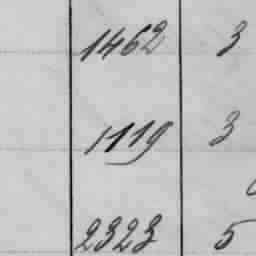 1462 3
1119 3
2323 5